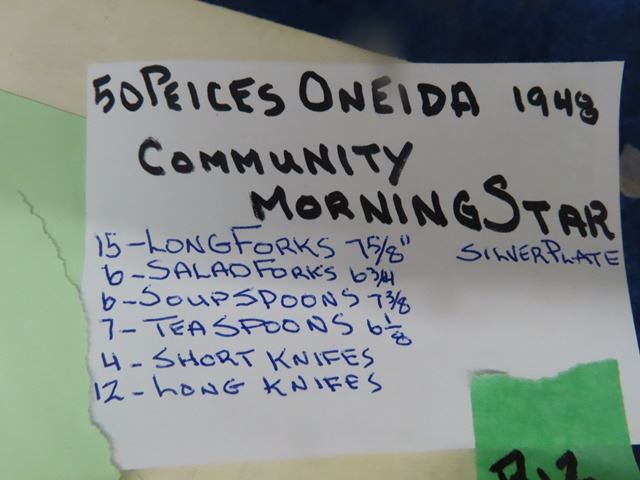 50 PEICES ONEIDA 1948
COMMUNITY
MORNING STAR
SILVERPLATE
15-LONG FORKS 7 5/8"
6-SALAD FORKS 6 3/4
6-SOUP SPOONS 7 3/8
7-TEA SPOONS 6 1/8
4-SHORT KNIFES
12-LONG KNIFES